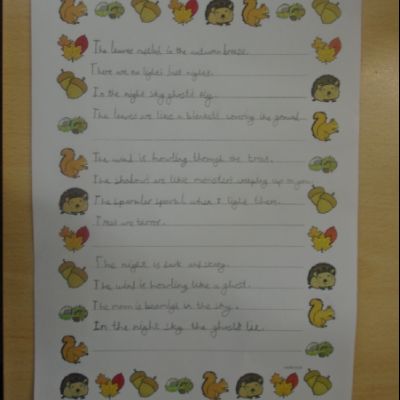 The leaves rustled in the autumn breeze.
There are no lights last night.
In the night sky ghosts fly.
The leaves are like a blanket covering the ground.
The wind is howling through the trees.
The shadows are like monsters creeping up on you.
The sparkler sparkl when I light them.
Trees are terror.
The night is dark and scary.
The wind is howling like a ghost.
The moon is in the sky.
In the night sky the ghosts lie.